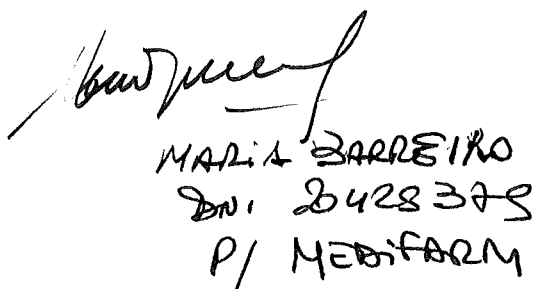 MARIA BARREIRO
DNI 20428379
P/ MEDIFARM